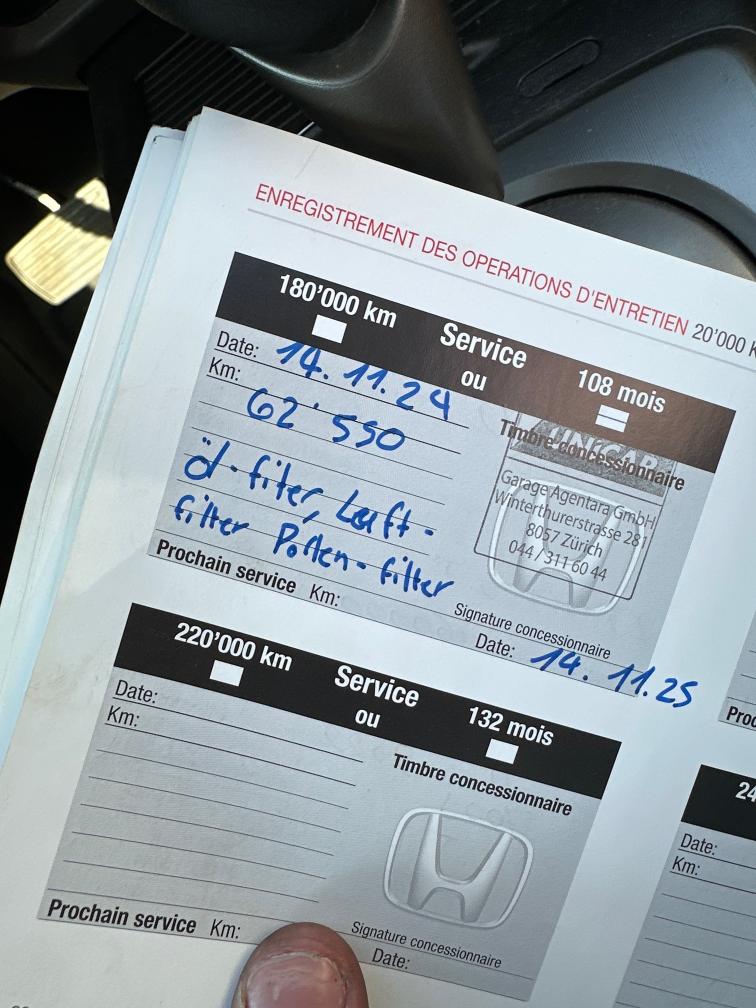 ENREGISTREMENT DES OPERATIONS D'ENTRETIEN 20'000 K
180'000 km Service ou 108 mois
Date: 14.11.24
Km: 62'550
Timbre concessionnaire
Garage Agentara GmbH
Winterthurerstrasse 281
8057 Zürich
044 / 311 60 44
öl-filter, Luft-
filter Pollen-filter
Signature concessionnaire
Prochain service Km: Date: 14.11.25
220'000 km Service ou 132 mois
Date:
Km:
Timbre concessionnaire
Signature concessionnaire
Prochain service Km: Date:
Proc
24
Date:
Km:
Proc